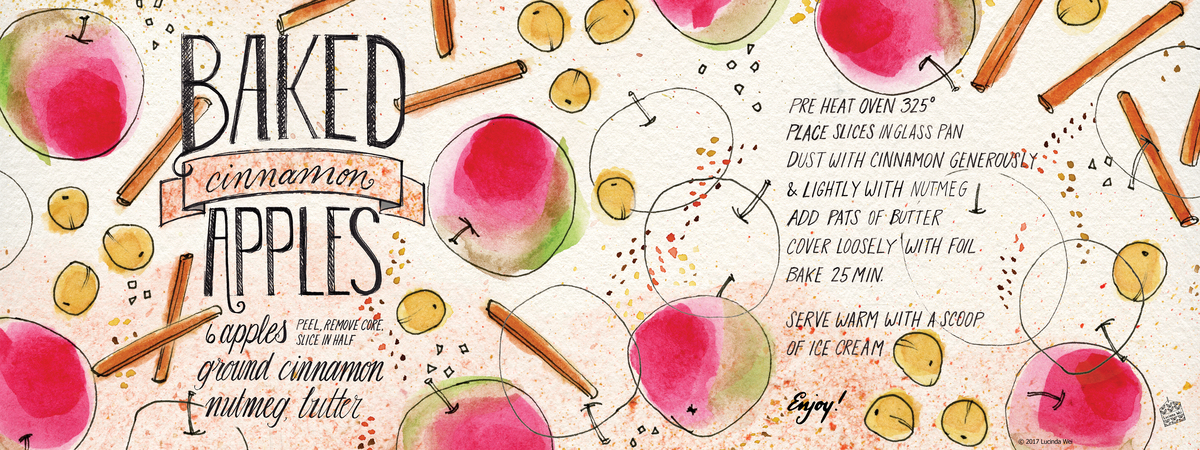 BAKED
cinnamon
APPLES
6 apples PEEL, REMOVE CORE,
SLICE IN HALF
ground cinnamon
nutmeg, butter
PRE HEAT OVEN 325°
PLACE SLICES IN GLASS PAN
DUST WITH CINNAMON GENEROUSLY
& LIGHTLY WITH NUTMEG
ADD PATS OF BUTTER
COVER LOOSELY WITH FOIL
BAKE 25 MIN.
SERVE WARM WITH A SCOOP
OF ICE CREAM
Enjoy!
© 2017 Lucinda Wei